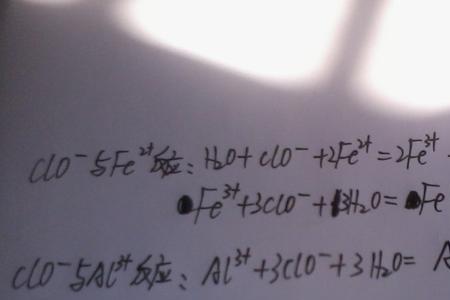 ClO⁻与Fe²⁺反应：H₂O+ClO⁻+2Fe²⁺=2Fe³⁺
Fe³⁺+3ClO⁻+3H₂O=Fe
ClO⁻与Al³⁺反应：Al³⁺+3ClO⁻+3H₂O=A